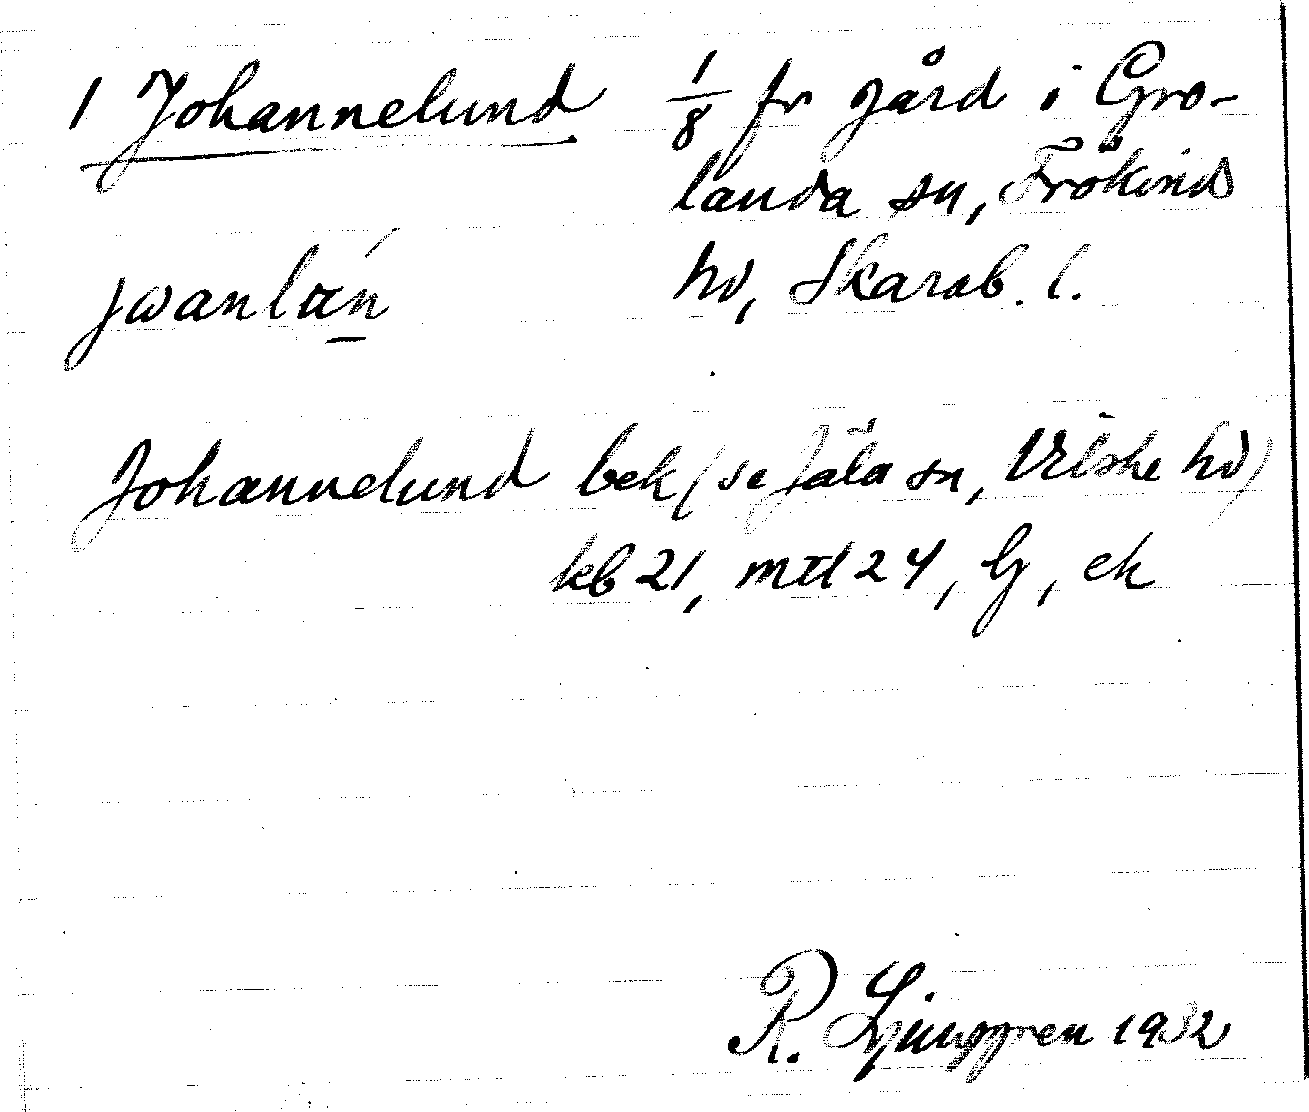 1 Johannelund 1/8 fr gård i Gro-
landa sn, Frökinds
hd, Skarab. l.
jωanlάn
Johannelund bek (se Jäla sn, Vilske hd)
kb 21, mtl 24, Lj, ek
R. Ljunggren 1932